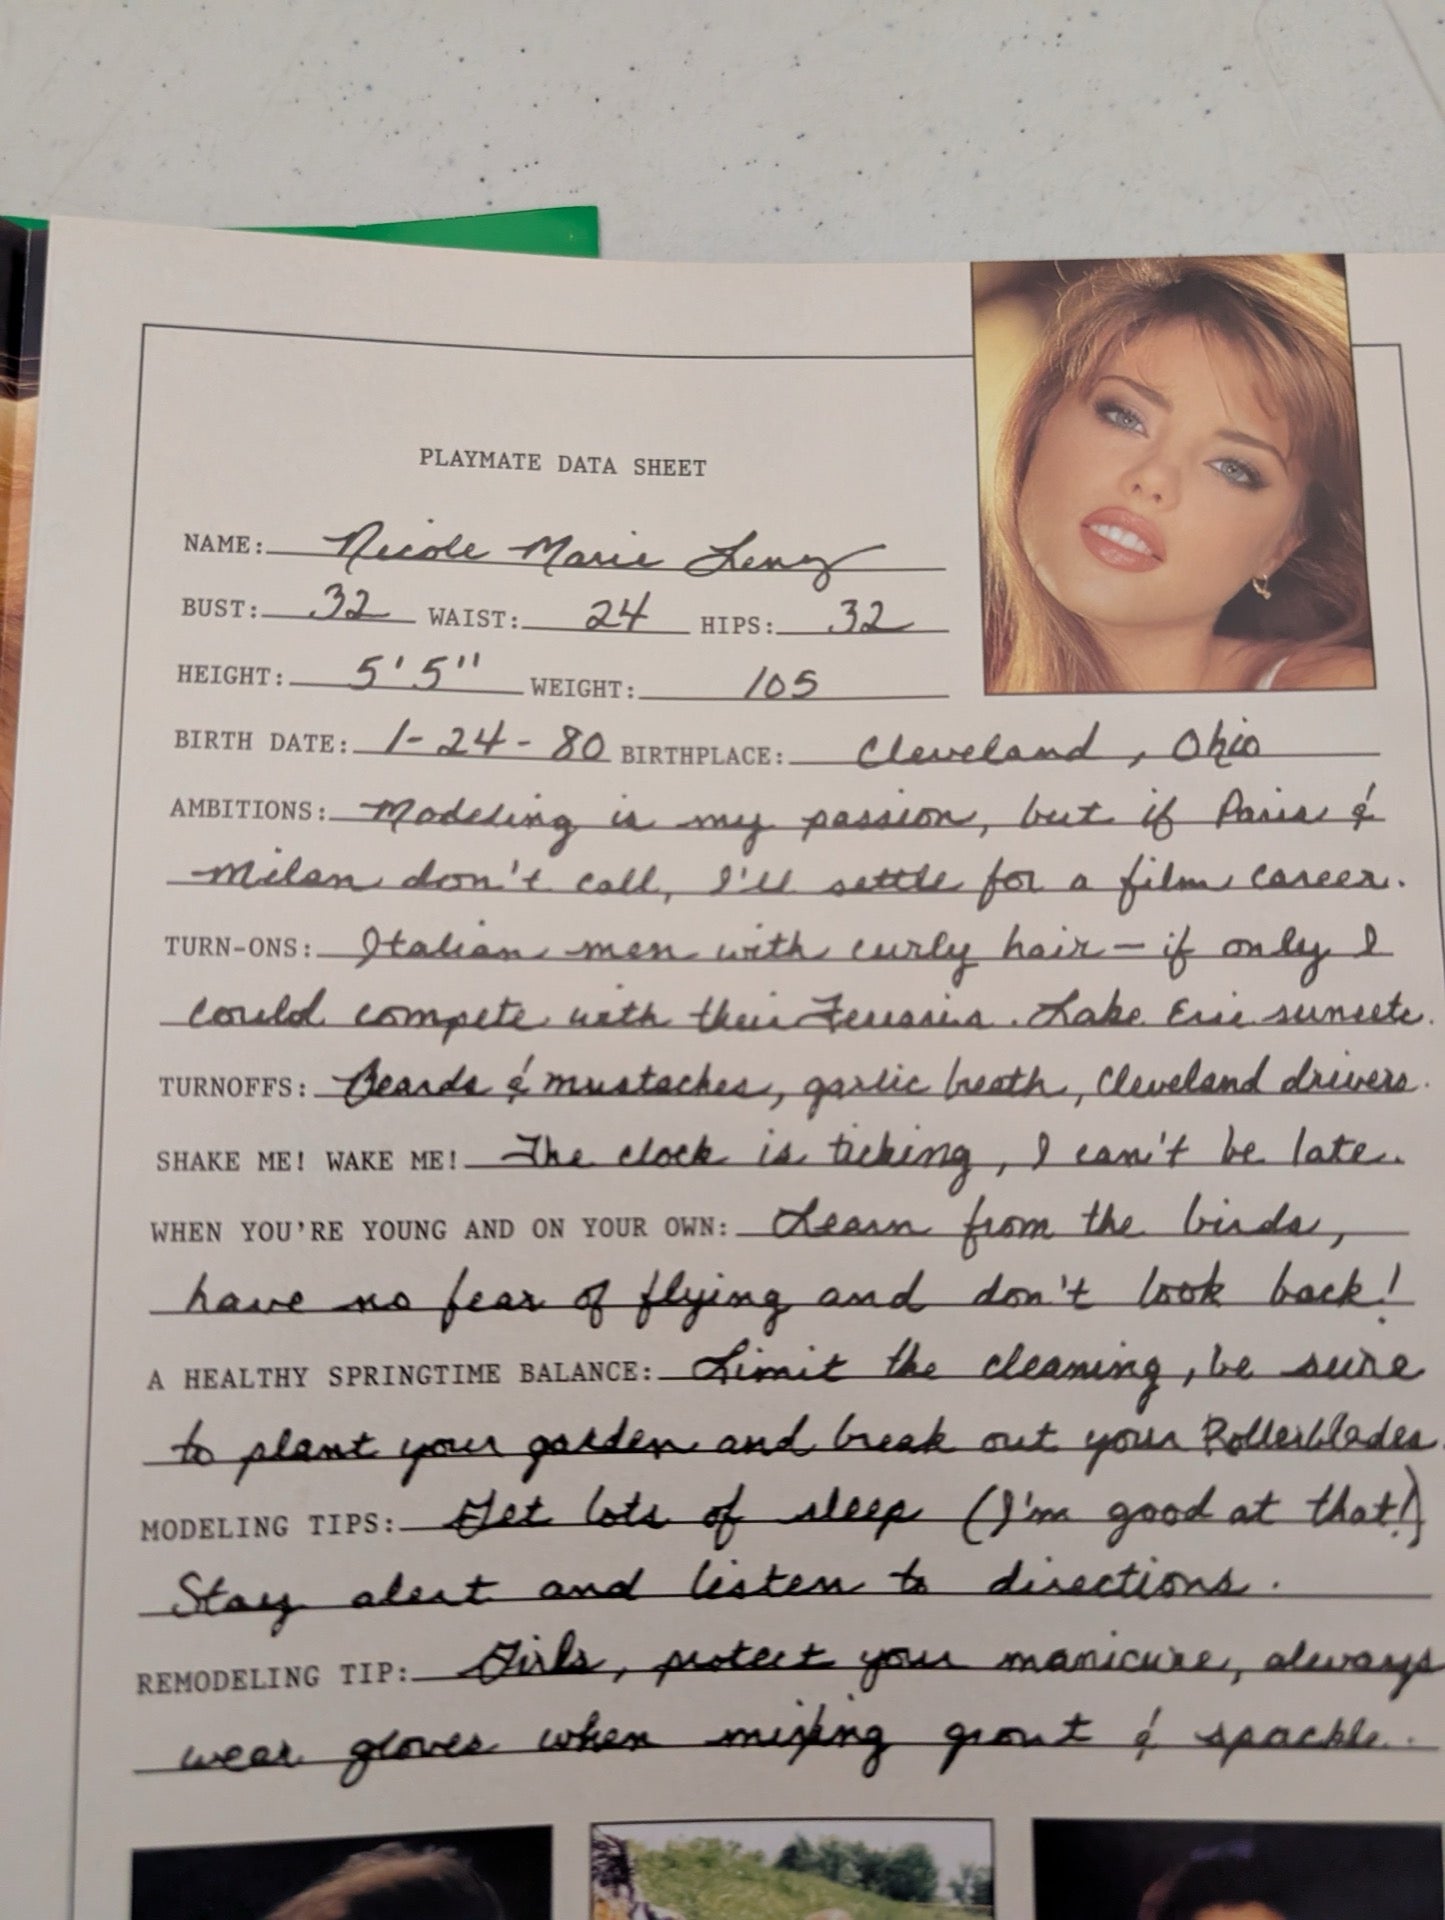 PLAYMATE DATA SHEET
NAME: Nicole Marie Lenz
BUST: 32 WAIST: 24 HIPS: 32
HEIGHT: 5'5" WEIGHT: 105
BIRTH DATE: 1-24-80 BIRTHPLACE: Cleveland, Ohio
AMBITIONS: Modeling is my passion, but if Paris &
Milan don't call, I'll settle for a film career.
TURN-ONS: Italian men with curly hair — if only I
could compete with their Ferraris. Lake Erie sunsets.
TURNOFFS: Beards & mustaches, garlic breath, Cleveland drivers.
SHAKE ME! WAKE ME! The clock is ticking, I can't be late.
WHEN YOU'RE YOUNG AND ON YOUR OWN: Learn from the birds,
have no fear of flying and don't look back!
A HEALTHY SPRINGTIME BALANCE: Limit the cleaning, be sure
to plant your garden and break out your Rollerblades.
MODELING TIPS: Get lots of sleep (I'm good at that!)
Stay alert and listen to directions.
REMODELING TIP: Girls, protect your manicure, always
wear gloves when mixing grout & spackle.